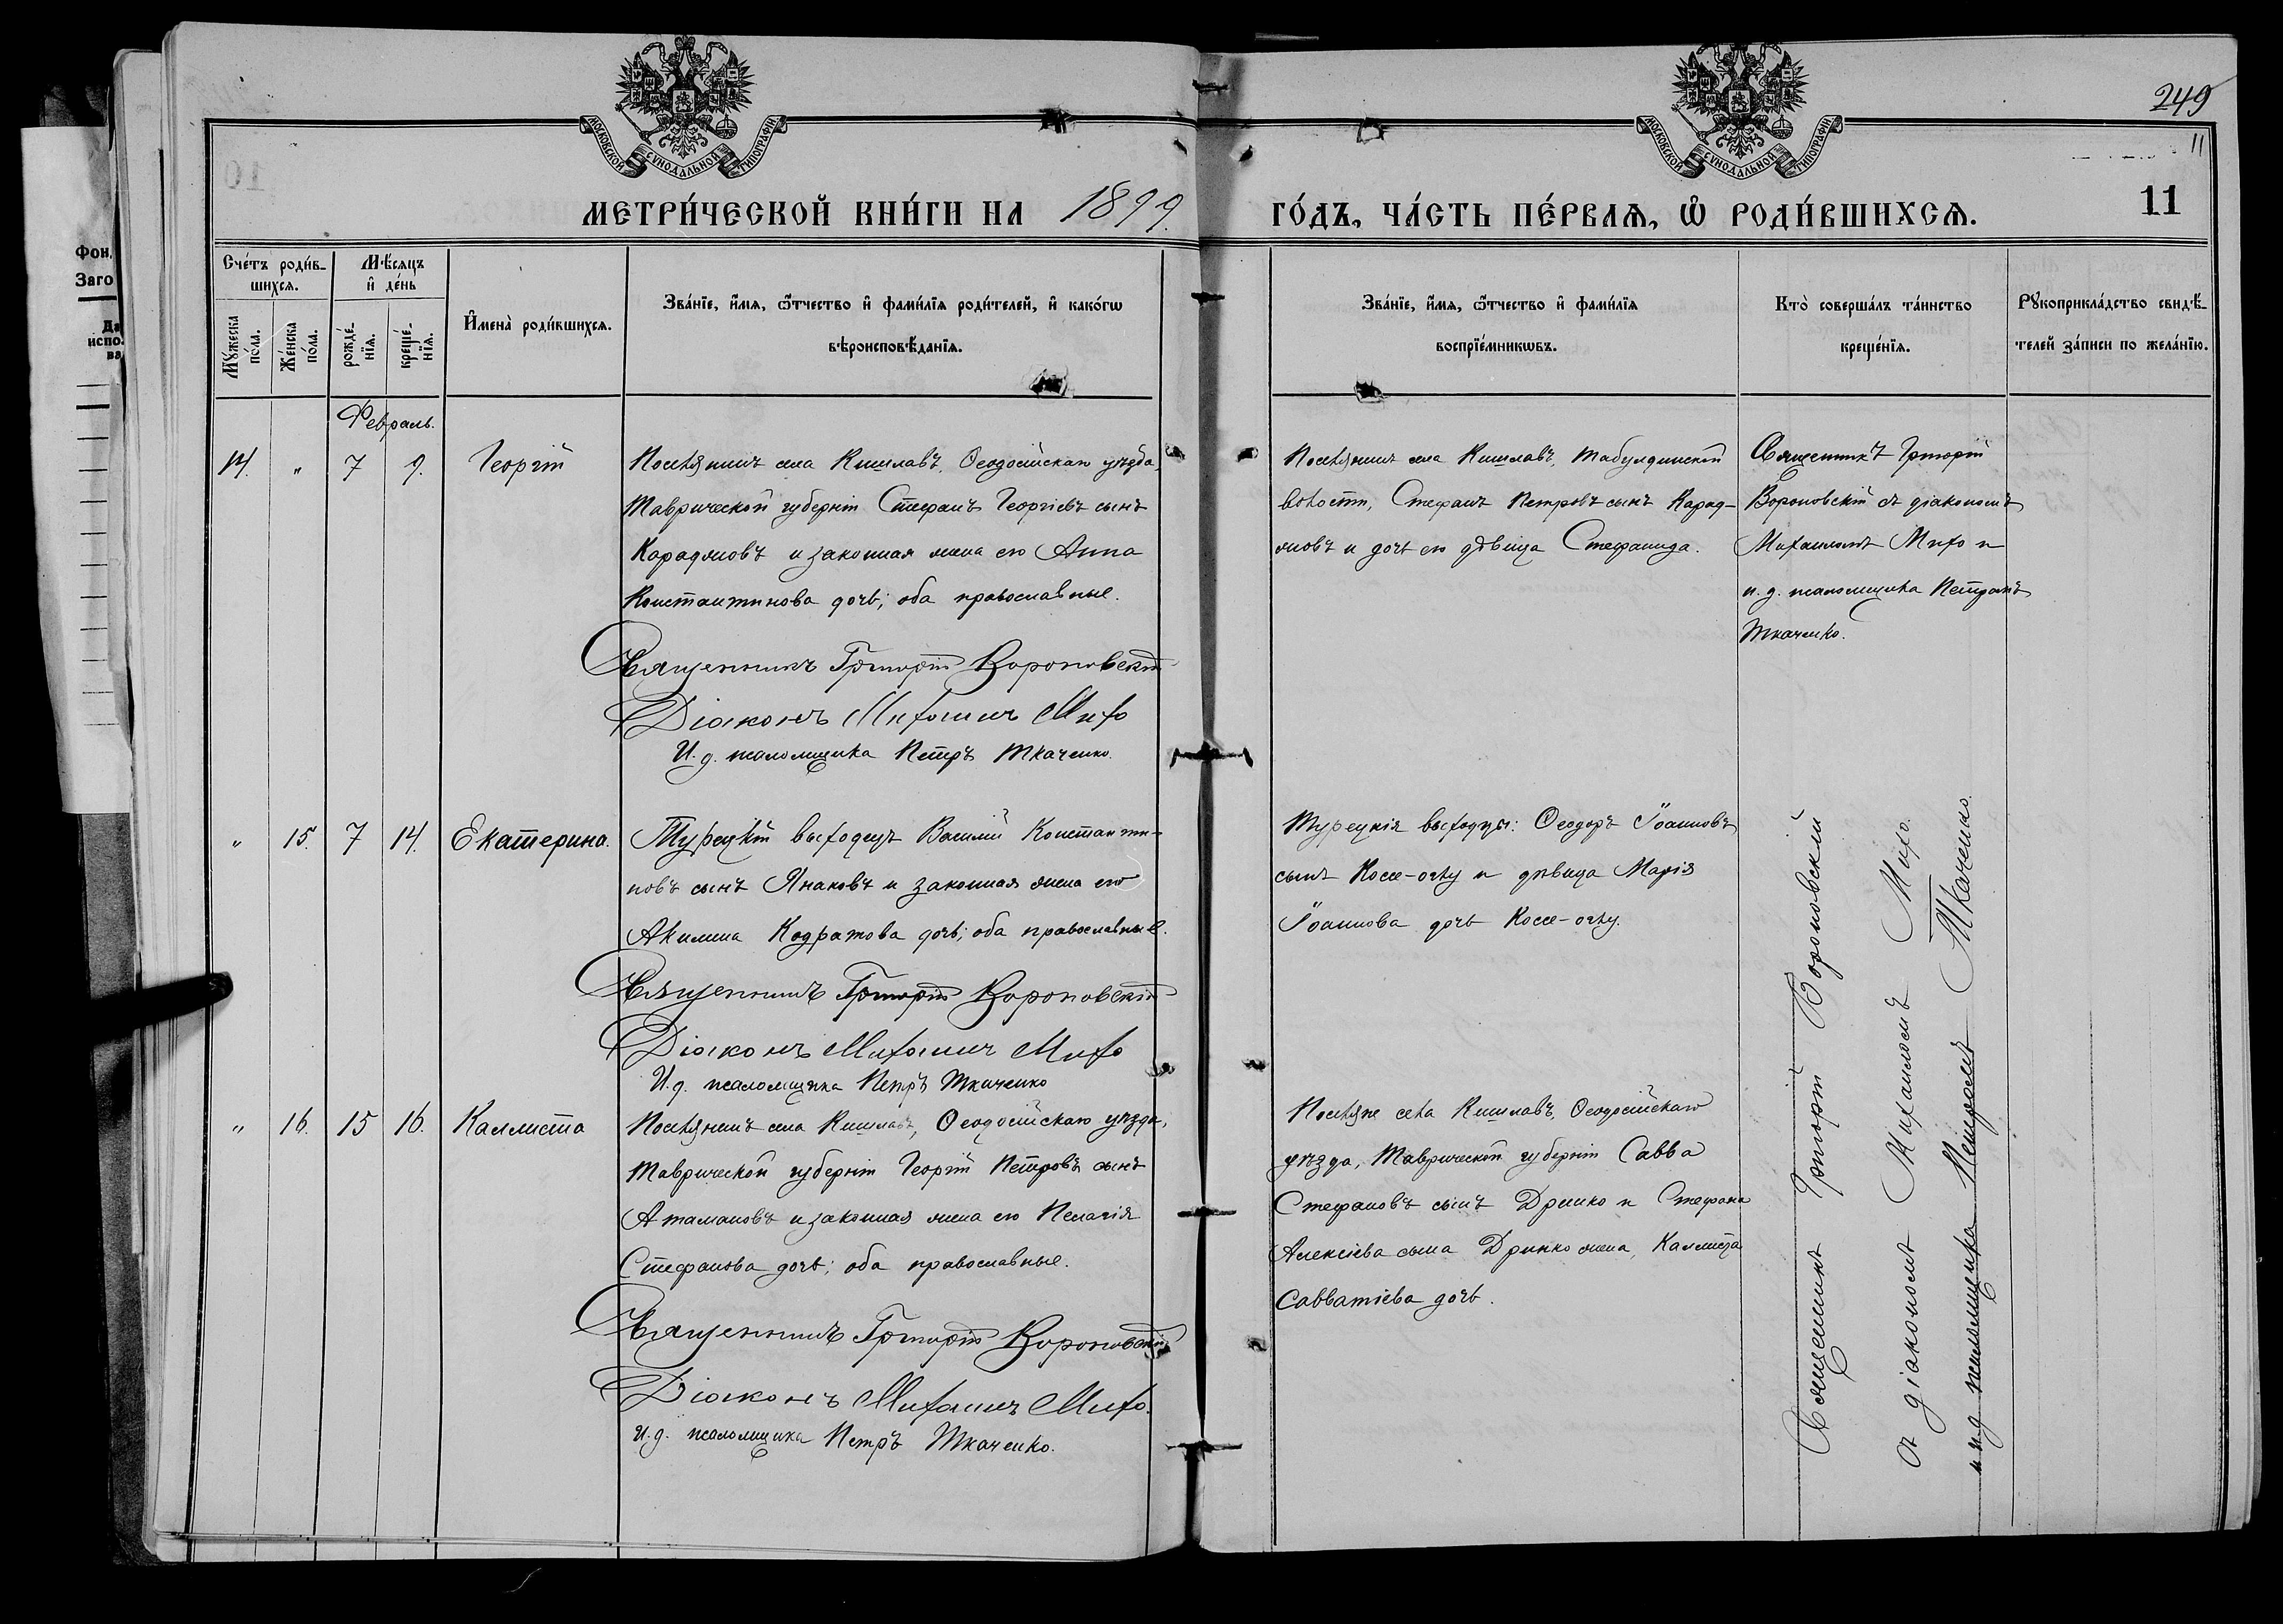 МОСКОВСКОЙ СѴНОДАЛЬНОЙ ТИПОГРАФІИ
МОСКОВСКОЙ СѴНОДАЛЬНОЙ ТИПОГРАФІИ
249
11
МЕТРИ́ЧЕСКОЙ КНИ́ГИ НА 1899.
ГО́ДЪ, ЧА́СТЬ ПЕ́РВАѦ, Ѽ РОДИ́ВШИХСѦ.
11
Фон.
Заго
Да
испо.
ва
Сче́тъ роди́в-
шихсѧ.
Мꙋ́жеска по́ла.
Же́нска по́ла.
Мѣ́сѧцъ
и҆ де́нь
рожде́-
нїѧ.
креще́-
нїѧ.
И҆мена̀ роди́вшихсѧ.
Зва́нїе, и҆́мѧ, ѻ҆́тчество и҆ фами́лїѧ роди́телей, и҆ како́гѡ
вѣроисповѣ́данїѧ.
Зва́нїе, и҆́мѧ, ѻ҆́тчество и҆ фами́лїѧ
воспрїе́мникѡвъ.
Кто̀ соверша́лъ та́инство
креще́нїѧ.
Рꙋкоприкла́дство свидѣ́-
телей за́писи по жела́нїю.
Февраль.
14. „ 7 9. Георгій
Поселянинъ села Кишлавъ, Ѳеодосійскаго уѣзда,
Таврической губерніи Стефанъ Георгіевъ сынъ
Караджовъ и законная жена его Анна
Константинова дочь; оба православные.
Священникъ Григорій Вороновскій
Діаконъ Михаилъ Михо
И. д. псаломщика Петръ Ткаченко.
Поселянинъ села Кишлавъ, Табулдинской
волости, Стефанъ Петровъ сынъ Карад-
жовъ и дочь его дѣвица Стефанида.
Священникъ Григорій
Вороновскій съ діакономъ
Михаиломъ Михо и
и. д. псаломщика Петромъ
Ткаченко.
„ 15. 7 14. Екатерина.
Турецкій выходецъ Василій Константи-
новъ сынъ Янаковъ и законная жена его
Акилина Кодратова дочь; оба православные.
Священникъ Григорій Вороновскій
Діаконъ Михаилъ Михо
И. д. псаломщика Петръ Ткаченко
Турецкія выходцы: Ѳеодоръ Іоанновъ
сынъ Коссе-оглу и дѣвица Марія
Іоаннова дочь Коссе-оглу.
„ 16. 15 16. Каллиста
Поселянинъ села Кишлавъ, Ѳеодосійскаго уѣзда,
Таврической губерніи Георгій Петровъ сынъ
Атамановъ и законная жена его Пелагія
Стефанова дочь; оба православные.
Священникъ Григорій Вороновскій
Діаконъ Михаилъ Михо.
И. д. псаломщика Петръ Ткаченко.
Поселяне села Кишлавъ, Ѳеодосійскаго
уѣзда, Таврической губерніи Савва
Стефановъ сынъ Дринко и Стефана
Алексіева сына Дринко жена, Каллиста
Савватіева дочь.
Священникъ Григорій Вороновскій
съ діакономъ Михаиломъ Михо.
и и.д. псаломщика Петромъ Ткаченко.